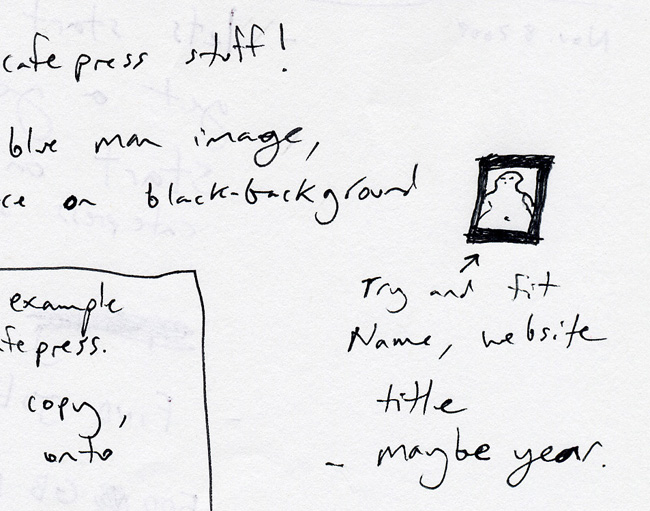 cafepress stuff!
blue man image,
ce on black-background
example
fepress.
copy,
onto
Try and fit
Name, website
title
- maybe year.